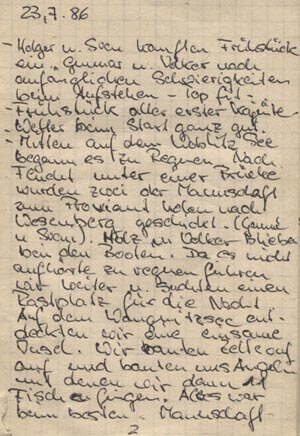 23.7.86
- Holger u. Sven kauften Frühstück
ein. Gunnar u. Volker nach
anfänglichen Schwierigkeiten
beim Aufstehen - Top fit -
- Frühstück aller erster Kajüte -
- Wetter beim Start ganz gut.
- Mitten auf dem Woblitz See
begann es zu Regnen. Nach
Flucht unter einer Brücke
wurden zwei der Mannschaft
zum Proviant holen nach
Wesenberg geschickt. (Gunnar
u. Sven). Holz u. Volker blieben
bei den Booten. Da es nicht
aufhörte zu regnen fuhren
wir weiter u. suchten einen
Rastplatz für die Nacht
Auf dem Wangnitzsee ent-
deckten wir eine einsame
Insel. Wir bauten Zelte auf
auf und bauten uns Angeln
mit denen wir dann 11
Fische fingen. Alles war
beim besten. Mannschaft
2